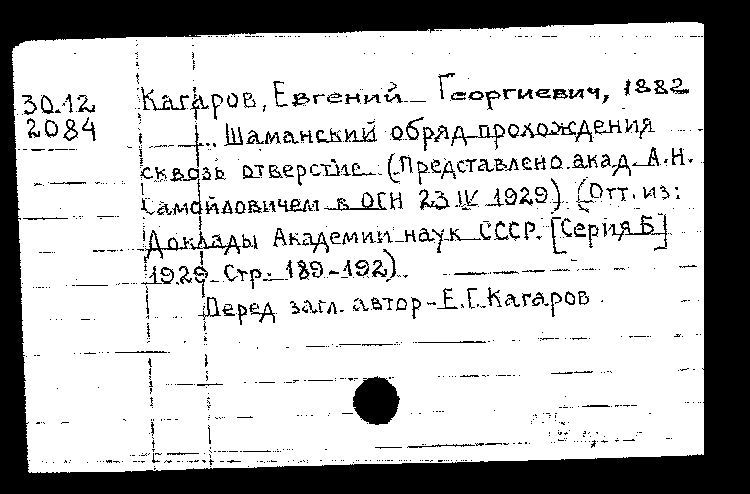 30.12
2084
Кагаров, Евгений Георгиевич, 1882
... Шаманский обряд прохождения
сквозь отверстие (Представлено акад. А.Н.
Самойловичем в ОГН 23 IV 1929) (Отт. из:
Доклады Академии наук СССР. [Серия Б]
1929 Стр. 189-192).
Перед загл. автор - Е.Г. Кагаров.